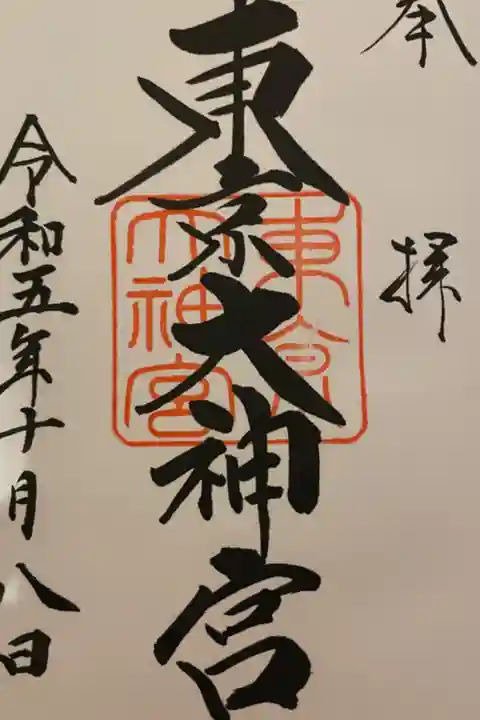 奉拝
東京大神宮
東京
大神宮
令和五年十月八日